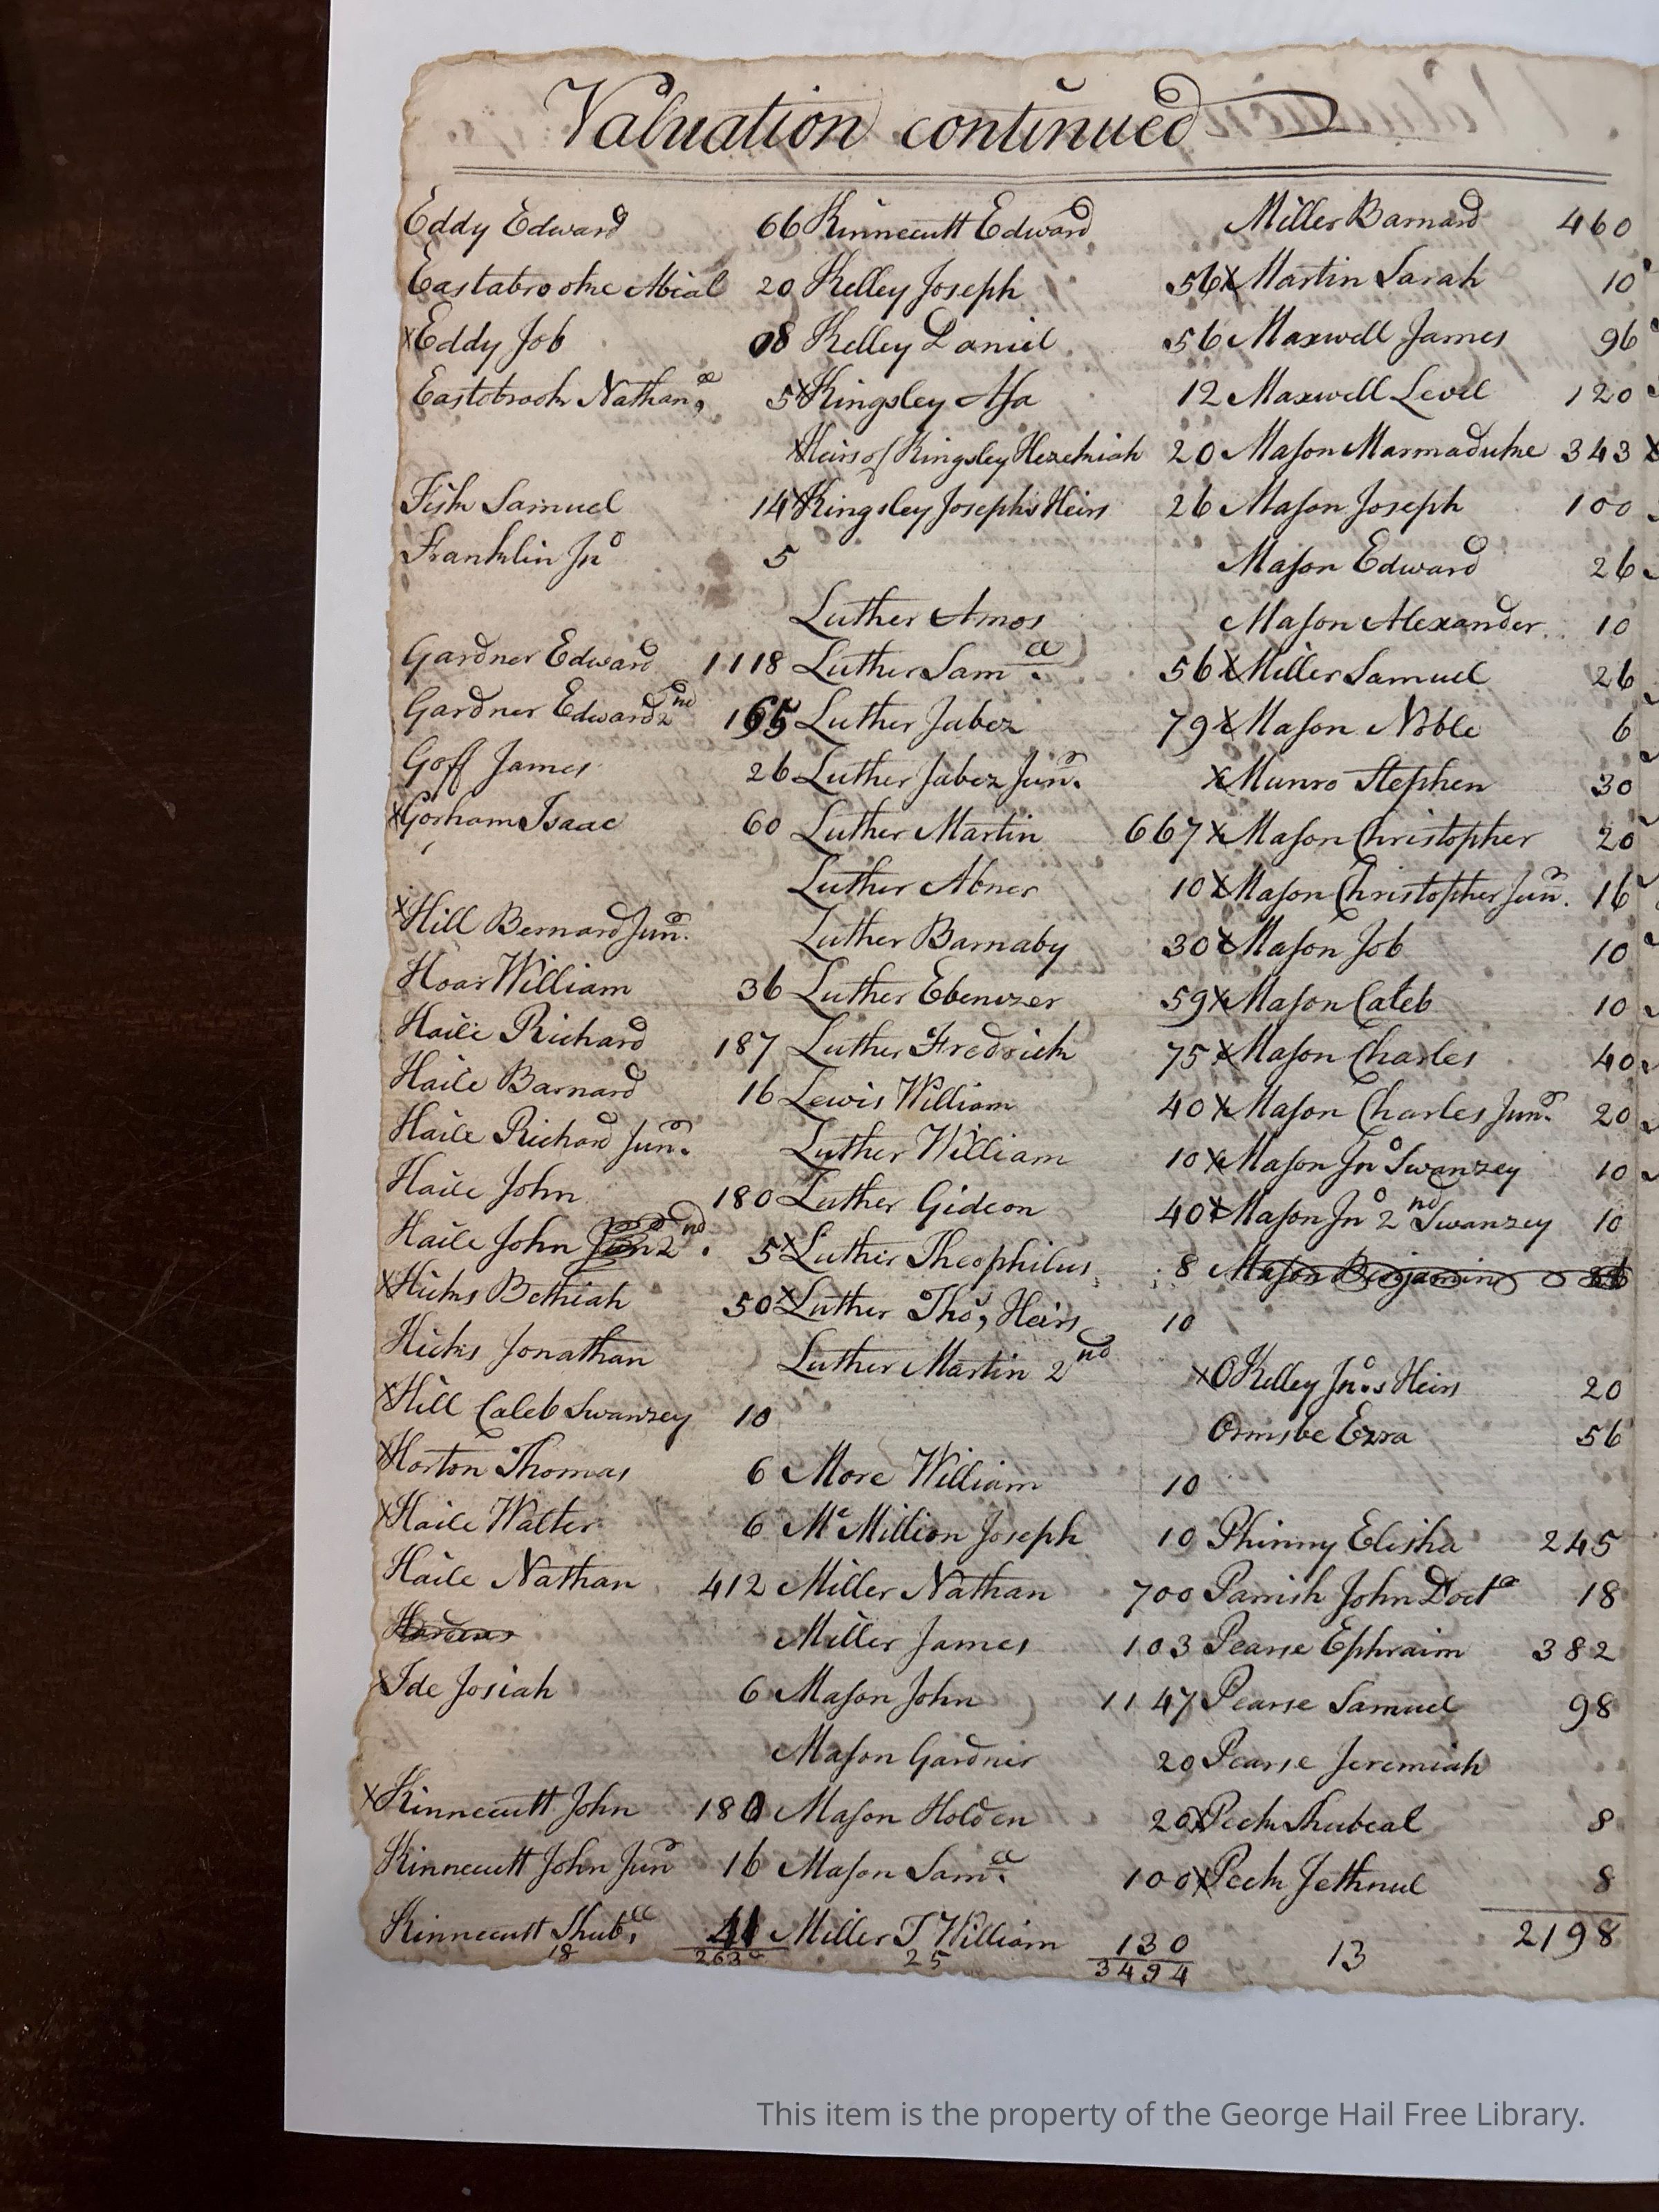 Valuation continued
Eddy Edward 66
Eastabrooke Abial 20
x Eddy Job 08
Eastobrook Nathan.ˡˡ 5
Fish Samuel 14
Franklin Jnº 5
Gardner Edward 1118
Gardner Edward 2nd 165
Goff James 26
x Gorham Isaac 60
x Hill Bernard Junr.
Hoar William 36
Haile Richard 187
Haile Barnard 16
Haile Richard Junr.
Haile John 180
Haile John Jun 2nd. 5
x Hicks Bethiah 50
Hicks Jonathan
x Hill Caleb Swanzey 10
x Horton Thomas 6
x Haile Walter 6
Haile Nathan 412
x Ide Josiah 6
x Kinnecutt John 180
Kinnecutt John Junr 16
Kinnecutt Shub.ˡˡ 41
18
Kinnecutt Edward
Kelley Joseph 56
Kelley Daniel 56
x Kingsley Asa 12
x Heirs of Kingsley Hezekiah 20
x Kingsley Joseph's Heirs 26
Luther Amos
Luther Sam.ˡˡ 56
Luther Jabez 79
Luther Jabez Junr.
Luther Martin 667
Luther Abner 10
Luther Barnaby 30
Luther Ebenezer 59
Luther Fredrick 75
Lewis William 40
Luther William 10
Luther Gideon 40
x Luther Theophilus 8
x Luther Thos, Heirs 10
Luther Martin 2nd
More William 10
Mc Million Joseph 10
Miller Nathan 700
Miller James 103
Mason John 1147
Mason Gardner 20
Mason Holden 20
Mason Sam.ˡˡ 100
Miller T William 130
25 3494
Miller Barnard 460
x Martin Sarah 10
Maxwell James 96
Maxwell Level 120
Mason Marmaduke 343 x
Mason Joseph 100
Mason Edward 26
Mason Alexander 10
x Miller Samuel 26
x Mason Noble 6
x Munro Stephen 30
x Mason Christopher 20
x Mason Christopher Junr. 16
x Mason Job 10
x Mason Caleb 10
x Mason Charles 40
x Mason Charles Junr. 20
x Mason Jnº Swanzey 10
x Mason Jnº 2nd Swanzey 10
Mason Benjamin
x OKelley Jnº.s Heirs 20
Ormsbe Ezra 56
Phinny Elisha 245
Parrish John Doctr 18
Pearse Ephraim 382
Pearse Samuel 98
Pearse Jeremiah
x Peck Shubeal 8
x Peck Jethnul 8
13 2198
This item is the property of the George Hail Free Library.